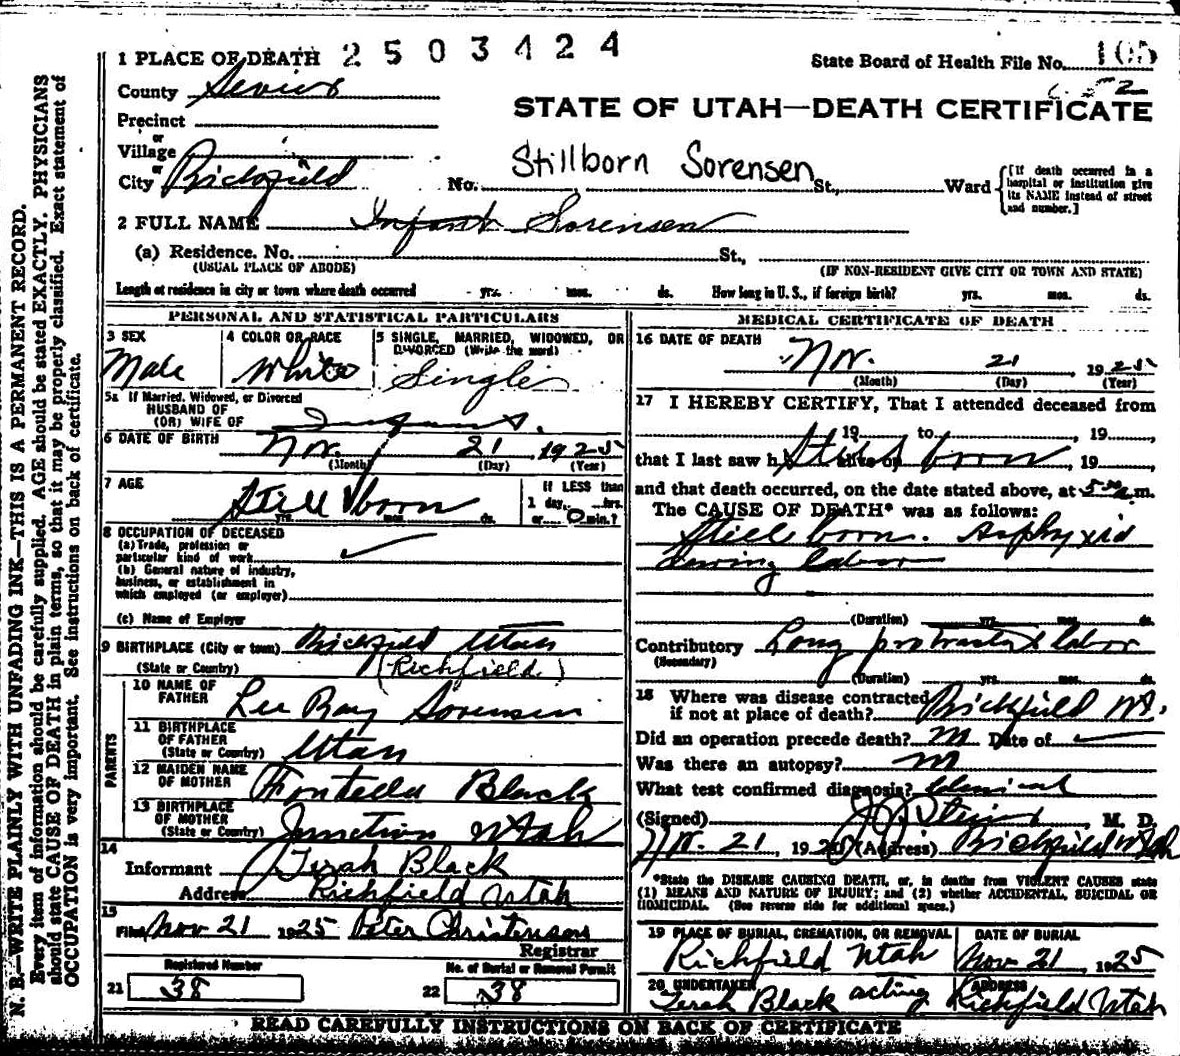 1 PLACE OF DEATH 2503424
State Board of Health File No. 105
County Sevier
STATE OF UTAH—DEATH CERTIFICATE
Precinct
or
Village
or
City Richfield No. Stillborn Sorensen St., Ward
[If death occurred in a hospital or institution give its NAME instead of street and number.]
2 FULL NAME Infant Sorensen
(a) Residence. No. St.,
(USUAL PLACE OF ABODE) (IF NON-RESIDENT GIVE CITY OR TOWN AND STATE)
Length of residence in city or town where death occurred yrs. mos. ds. How long in U. S., if foreign birth? yrs. mos. ds.
PERSONAL AND STATISTICAL PARTICULARS
3 SEX Male
4 COLOR OR RACE White
5 SINGLE, MARRIED, WIDOWED, OR DIVORCED (Write the word) Single
5a If Married, Widowed, or Divorced
HUSBAND OF
(OR) WIFE OF Infant.
6 DATE OF BIRTH Nov. 21 1925
(Month) (Day) (Year)
7 AGE Still born
yrs. mos. ds.
If LESS than
1 day, hrs.
or 0 min.?
8 OCCUPATION OF DECEASED
(a) Trade, profession or
particular kind of work ✓
(b) General nature of industry,
business, or establishment in
which employed (or employer)
(c) Name of Employer
9 BIRTHPLACE (City or town) Richfield Utah
(State or Country) (Richfield)
PARENTS
10 NAME OF
FATHER Lee Ray Sorensen
11 BIRTHPLACE
OF FATHER
(State or Country) Utah
12 MAIDEN NAME
OF MOTHER Fontella Black
13 BIRTHPLACE
OF MOTHER
(State or Country) Junction Utah
14
Informant Terah Black
Address Richfield Utah
15
Filed Nov 21 1925 Peter Christensen
Registrar
Registered Number
21 38
No. of Burial or Removal Permit
22 38
MEDICAL CERTIFICATE OF DEATH
16 DATE OF DEATH
Nov. 21 1925
(Month) (Day) (Year)
17 I HEREBY CERTIFY, That I attended deceased from
19 to , 19
that I last saw h alive on Still born , 19
and that death occurred, on the date stated above, at 5 30 a.m.
The CAUSE OF DEATH* was as follows:
Still born. Asphyxia
during labor
(Duration) yrs. mos. ds.
Contributory Long protracted labor
(Secondary)
(Duration) yrs. mos. ds.
18 Where was disease contracted
if not at place of death? Richfield Ut.
Did an operation precede death? no Date of ✓
Was there an autopsy? no
What test confirmed diagnosis? Clinical
(Signed) , M. D.
Nov. 21, 1925 (Address) Richfield Utah
*State the DISEASE CAUSING DEATH, or, in deaths from VIOLENT CAUSES state
(1) MEANS AND NATURE OF INJURY; and (2) whether ACCIDENTAL, SUICIDAL OR
HOMICIDAL. (See reverse side for additional space.)
19 PLACE OF BURIAL, CREMATION, OR REMOVAL
Richfield Utah
DATE OF BURIAL
Nov 21, 1925
20 UNDERTAKER
Terah Black acting
ADDRESS
Richfield Utah
READ CAREFULLY INSTRUCTIONS ON BACK OF CERTIFICATE
N. B.—WRITE PLAINLY WITH UNFADING INK—THIS IS A PERMANENT RECORD.
Every item of information should be carefully supplied. AGE should be stated EXACTLY. PHYSICIANS
should state CAUSE OF DEATH in plain terms, so that it may be properly classified. Exact statement of
OCCUPATION is very important. See instructions on back of certificate.